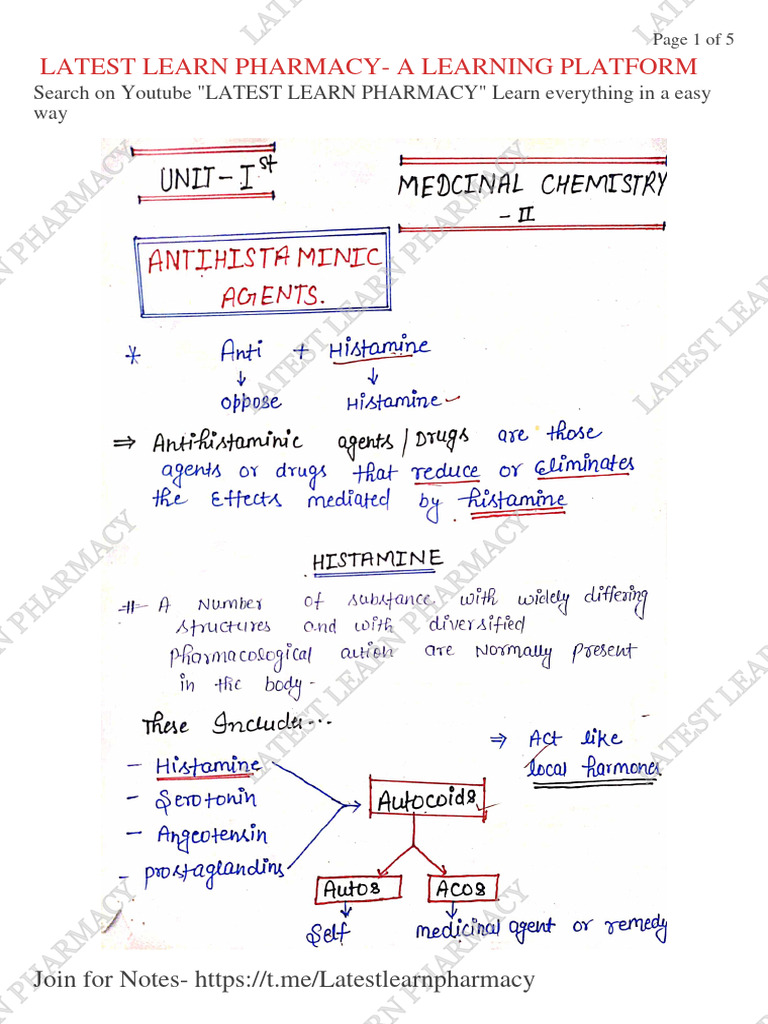 Page 1 of 5
LATEST LEARN PHARMACY- A LEARNING PLATFORM
Search on Youtube "LATEST LEARN PHARMACY" Learn everything in a easy
way
UNIT-Ist
MEDCINAL CHEMISTRY
- II
ANTIHISTAMINIC
AGENTS.
* Anti + Histamine
↓ ↓
oppose Histamine
⇒ Antihistaminic agents/Drugs are those
agents or drugs that reduce or Eliminates
the Effects mediated by histamine
HISTAMINE
# A Number of substance with widely differing
structures and with diversified
pharmacological aution are Normally present
in the body-
These Includes...
- Histamine
- Serotonin
- Angeotensin
- prostaglandins
⇒ Act like
local harmones
Autocoids
Autos Acos
↓ ↓
Self medicinal agent or remedy
Join for Notes- https://t.me/Latestlearnpharmacy
LATEST LEARN PHARMACY